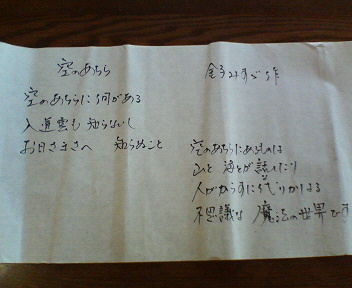 空のあちら
金子みすゞ作
空のあちらに何がある
入道雲も知らないし
お日さまさへ 知らぬこと
空のあちらにあるものは
山と海とが話したり
人がからすにかはる
不思議な 魔法の世界です